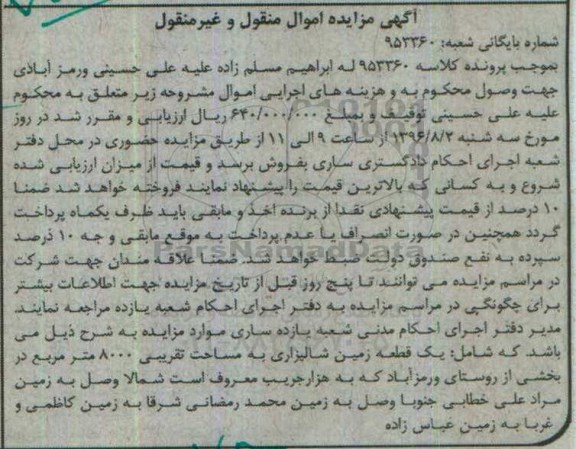 آگهی مزایده اموال منقول و غیرمنقول
شماره بایگانی شعبه: ۹۵۳۳۶۰
بموجب پرونده کلاسه ۹۵۳۳۶۰ له ابراهیم مسلم زاده علیه علی حسینی ورمز آبادی
جهت وصول محکوم به و هزینه های اجرایی اموال مشروحه زیر متعلق به محکوم
علیه علی حسینی توقیف و بمبلغ ۶۴۰/۰۰۰/۰۰۰ ریال ارزیابی و مقرر شد در روز
مورخ سه شنبه ۱۳۹۶/۸/۲ از ساعت ۹ الی ۱۱ از طریق مزایده حضوری در محل دفتر
شعبه اجرای احکام دادگستری ساری بفروش برسد و قیمت از میزان ارزیابی شده
شروع و به کسانی که بالاترین قیمت را پیشنهاد نمایند فروخته خواهد شد ضمنا
۱۰ درصد از قیمت پیشنهادی نقدا از برنده اخذ و مابقی باید ظرف یکماه پرداخت
گردد همچنین در صورت انصراف یا عدم پرداخت به موقع مابقی و جه ۱۰ درصد
سپرده به نفع صندوق دولت ضبط خواهد شد. ضمنا علاقه مندان جهت شرکت
در مراسم مزایده می توانند تا پنج روز قبل از تاریخ مزایده جهت اطلاعات بیشتر
برای چگونگی در مراسم مزایده به دفتر اجرای احکام شعبه یازده مراجعه نمایند.
مدیر دفتر اجرای احکام مدنی شعبه یازده ساری موارد مزایده به شرح ذیل می
باشد. که شامل: یک قطعه زمین شالیزاری به مساحت تقریبی ۸۰۰۰ متر مربع در
بخشی از روستای ورمزآباد که به هزارجریب معروف است شمالا وصل به زمین
مراد علی خطابی جنوبا وصل به زمین محمد رمضانی شرقا به زمین کاظمی و
غربا به زمین عباس زاده